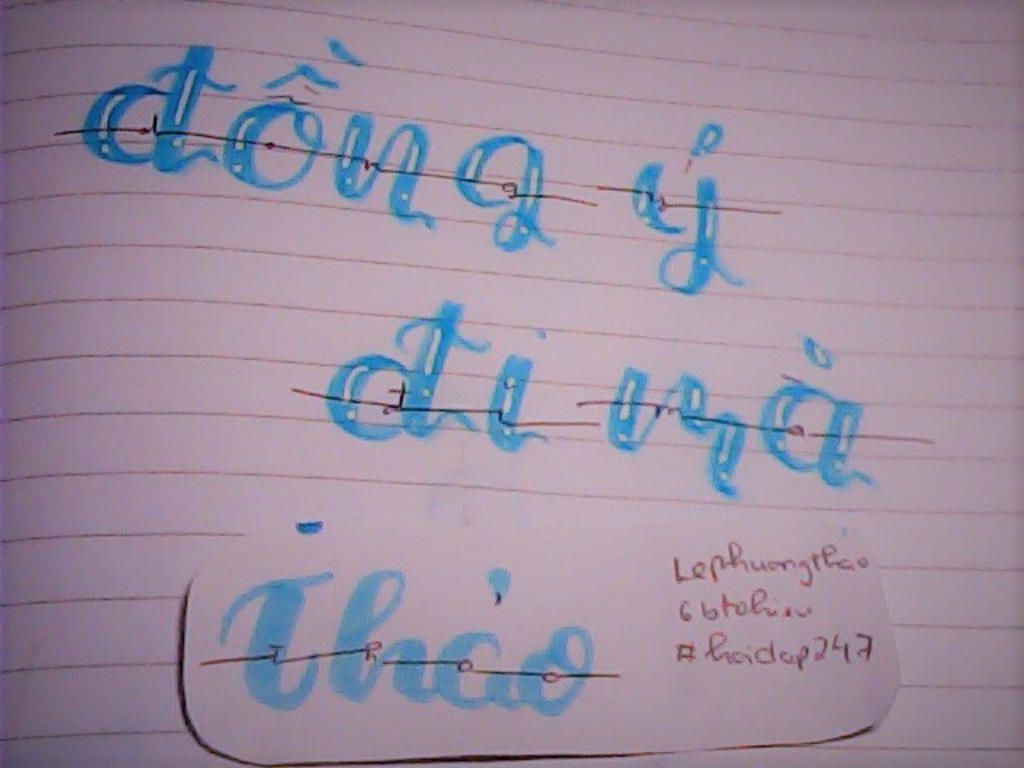 đồng ý
đi mà
Thảo
Lephuongthao
6btohieu
#hoidap247